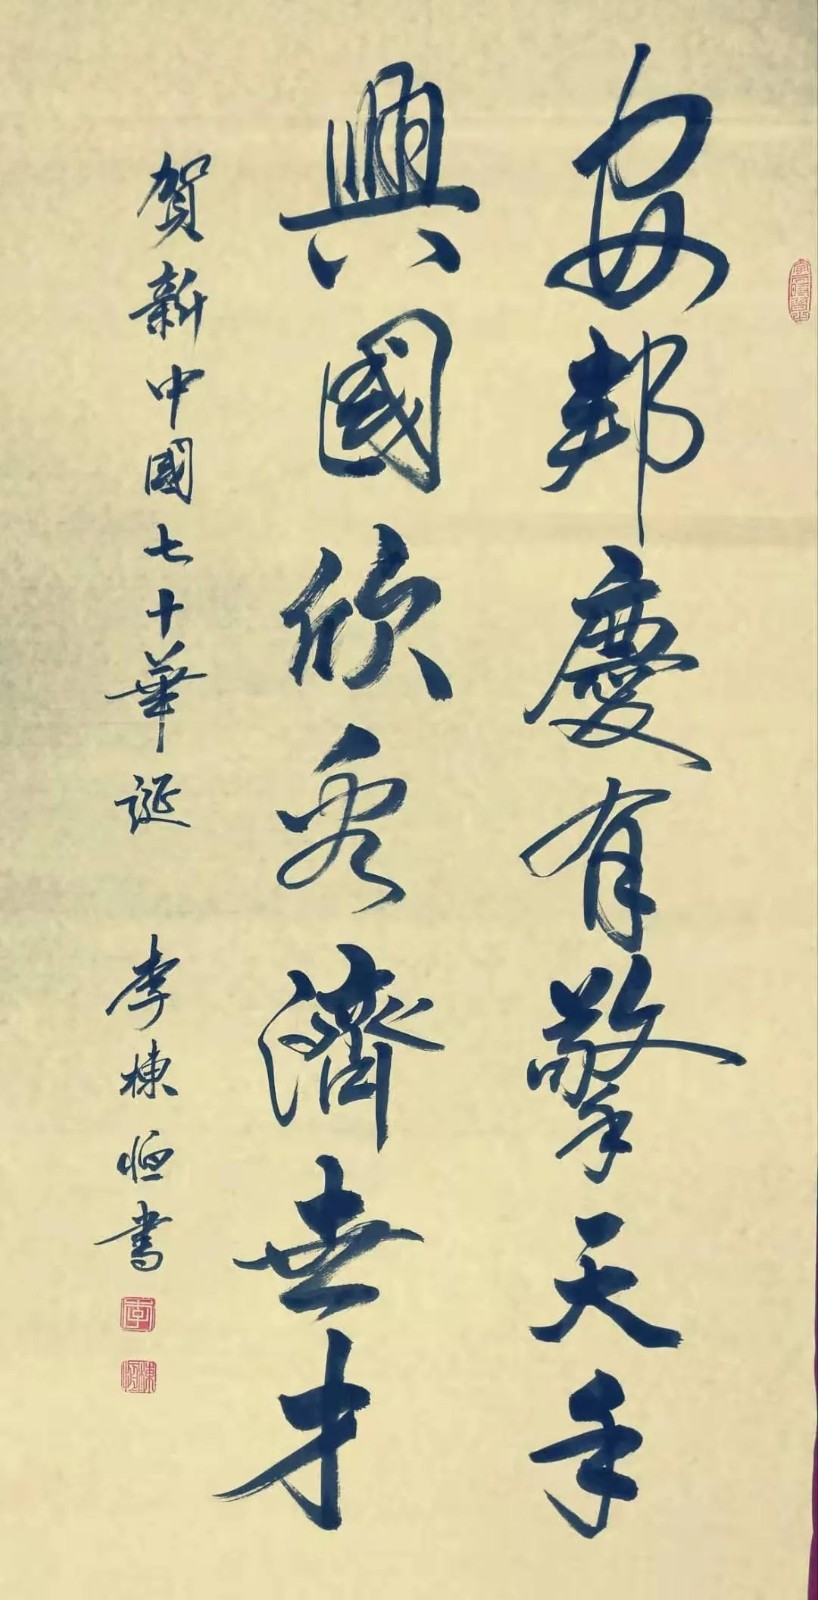 安邦慶有擎天手
興國欣看濟世才
賀新中國七十華誕 李棟恒書
李